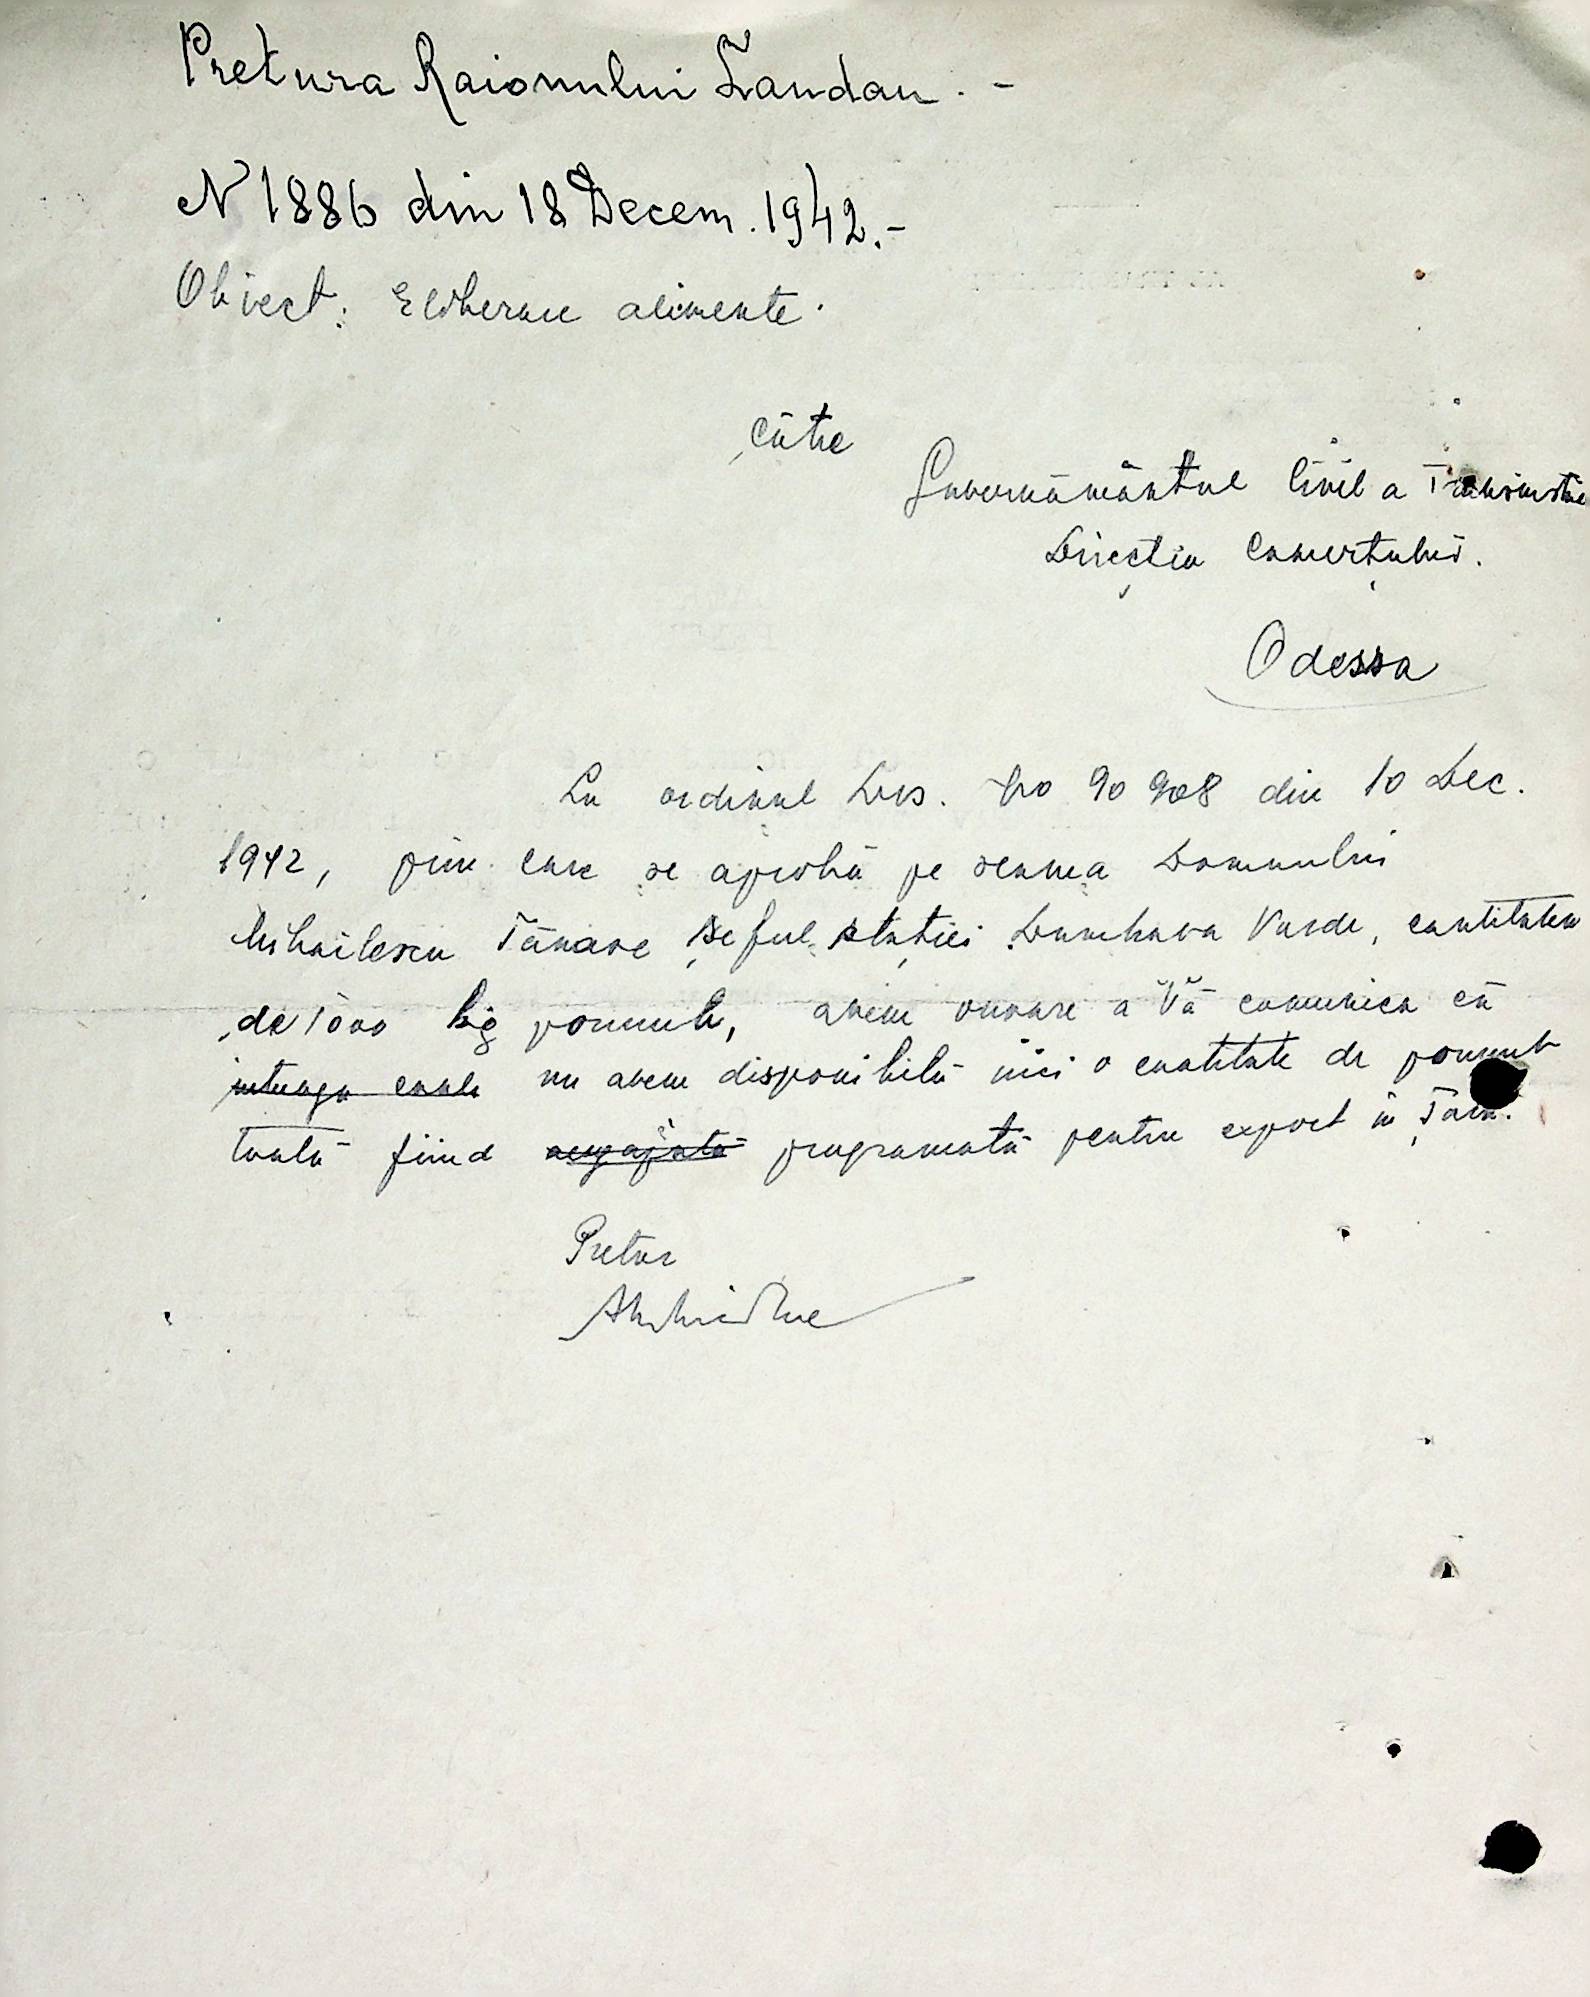 Pretura Raionului Landau. -
N 1886 din 18 Decem. 1942.-
Obiect: Eliberare alimente.
către
Guvernământul Civil a Transnistriei
Direcția Comerțului.
Odessa
La ordinul Dvs. No 90908 din 10 Dec.
1942, prin care se aprobă pe seama Domnului
Mihăilescu Tănase Șeful stației Dumbrava Verde, cantitatea
de 1000 kg porumb, avem onoare a Vă comunica că
nu avem disponibilă nici o cantitate de porumb
toată fiind angajată programată pentru export în Țară.
Pretor